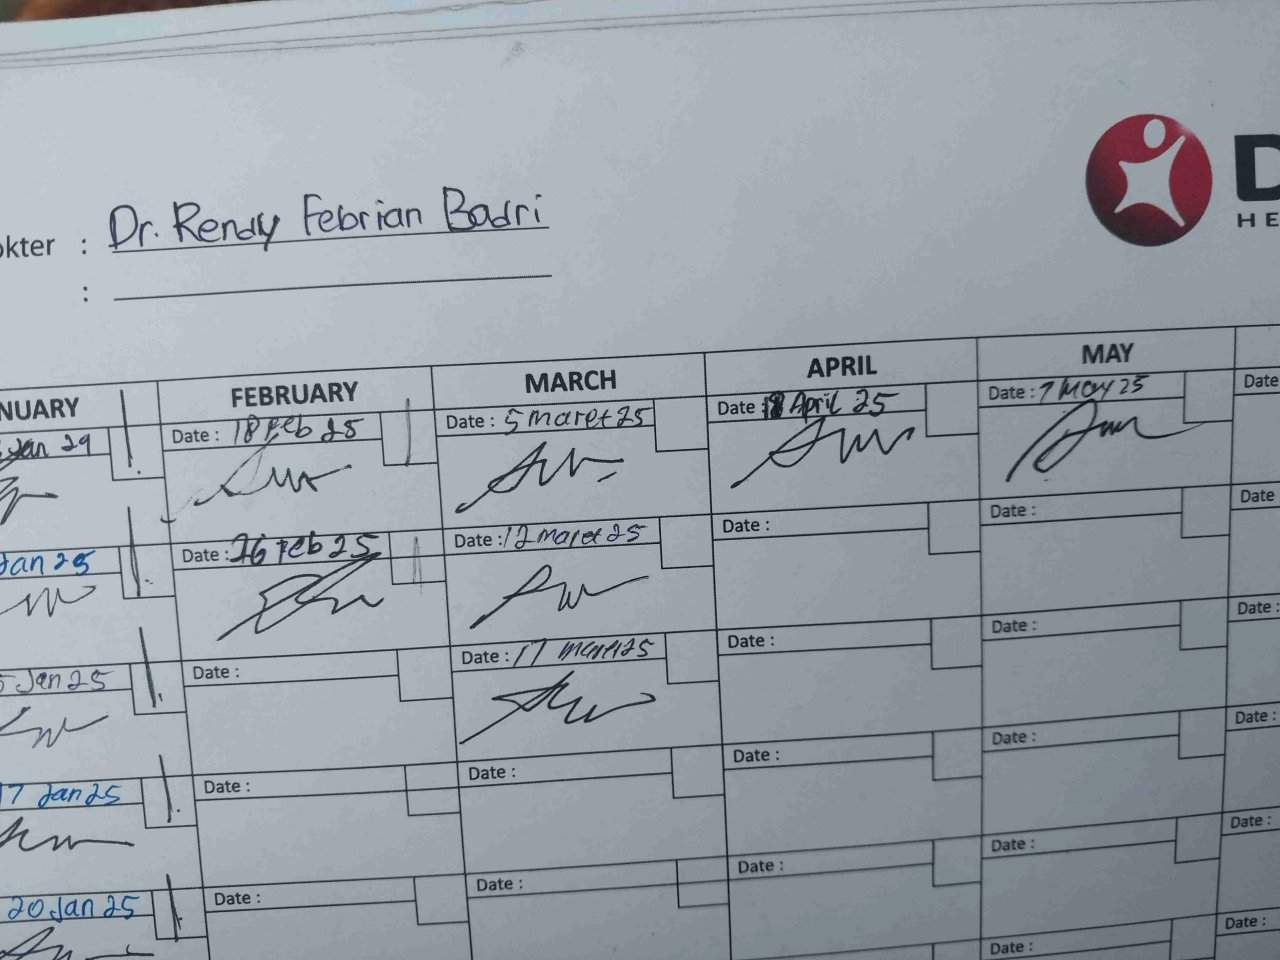 okter : Dr. Rendy Febrian Badri
:
D
HE
NUARY FEBRUARY MARCH APRIL MAY
Jan 29 Date : 18 Feb 25 Date : 5 maret 25 Date : April 25 Date : 7 May 25 Date
Jan 25 Date : 26 Feb 25 Date : 12 maret 25 Date : Date : Date
5 Jan 25 Date : Date : 17 maret 25 Date : Date : Date :
17 Jan 25 Date : Date : Date : Date : Date :
20 Jan 25 Date : Date : Date : Date : Date :
Date : Date :